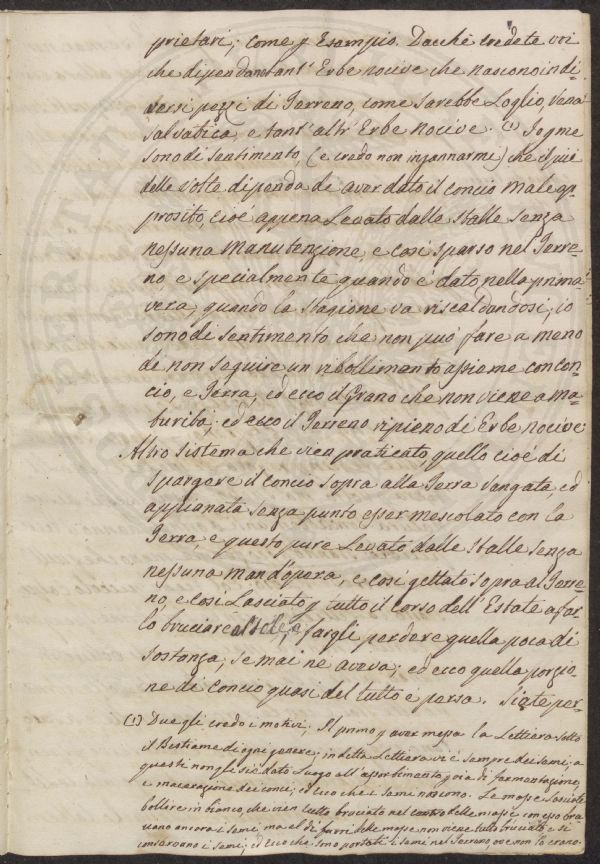 prietari; come p Esempio. Dacchè credete voi
che dipendano tant' Erbe nocive che nascono in di-
versi pezzi di Terreno, come sarebbe Loglio, Vena
salvatica, e tant' altr' Erbe Nocive. (1) Io p me
sono di sentimento, (e credo non ingannarmi) che il più
delle volte dipenda da aver dato il concio male ap-
prosito, cioè appena Levato dalle stalle senza
nessuna Manutenzione, e così sparso nel Terre-
no, e specialmente quando è dato nella prima-
vera, quando la stagione va riscaldandosi, io
sono di sentimento che non può fare a meno
di non seguire un ribollimento assieme con con-
cio, e Terra, ed ecco il Grano che non viene a ma-
turità; ed ecco il Terreno ripieno di Erbe nocive
Altro sistema che vien praticato, quello cioè di
spargere il concio sopra alla Terra Vangata, ed
appianata senza punto esser mescolato con la
Terra, e questo pure Levato dalle stalle senza
nessuna mand'opera, e così gettato sopra al Terre-
no, e così Lasciato p tutto il corso dell' Estate a far-
lo bruciare al sole, e fargli perdere quella poca di
sostanza, se mai ne aveva; ed ecco quella porzio-
ne di concio quasi del tutto e persa. Siate per-
(1) Due gli credo i motivi; Il primo p aver messa la Lettiera sotto
il Bestiame di ogni genere; in detta Lettiera vi è sempre dei semi, a
questi non gli si è dato Luogo all' assortimento, o sia di fermentazione,
e macerazione dei conci; ed ecco che i semi nascono. Le masse lasciate
bollire in bianco, che vien tutto bruciato nel centro delle masse con esso bru-
ciano ancora i semi, ma al di fuori delle masse non viene tutto bruciato e si
conservano i semi; ed ecco che sono portati i semi nel Terreno ove non lo erano.